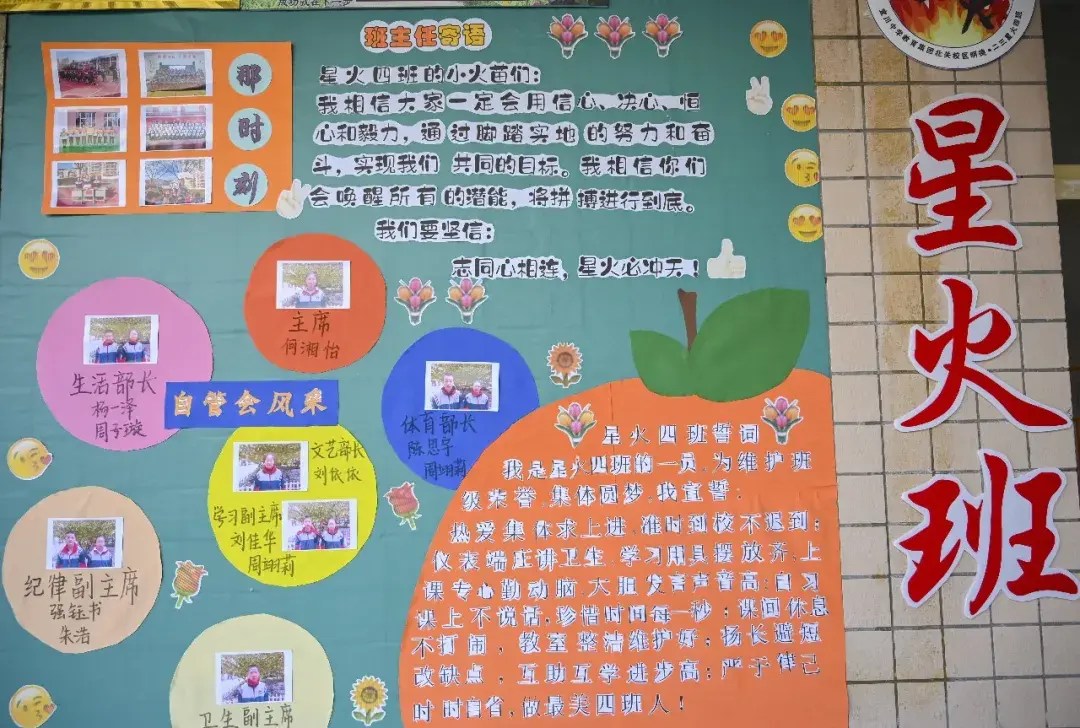 成功就在下一步
班主任寄语
星火四班的小火苗们：
我相信大家一定会用信心、决心、恒
心和毅力，通过脚踏实地的努力和奋
斗，实现我们共同的目标。我相信你们
会唤醒所有的潜能，将拼搏进行到底。
我们要坚信：
志同心相连，星火必冲天！
那
时
刻
主席
何湘怡
生活部长
杨一泽
周子璇
自管会风采
体育部长
陈思宇
周翊莉
文艺部长
刘依依
学习副主席
刘佳华
周翊莉
纪律副主席
强钰书
朱浩
卫生副主席
星火四班誓词
我是星火四班的一员，为维护班
级荣誉，集体圆梦，我宣誓：
热爱集体求上进，准时到校不迟到；
仪表端庄讲卫生，学习用具摆放齐，上
课专心勤动脑，大胆发言声音高；自习
课上不说话，珍惜时间每一秒；课间休息
不打闹，教室整洁维护好；扬长避短
改缺点，互助互学进步高；严于律己
时时自省，做最美四班人！
星火班